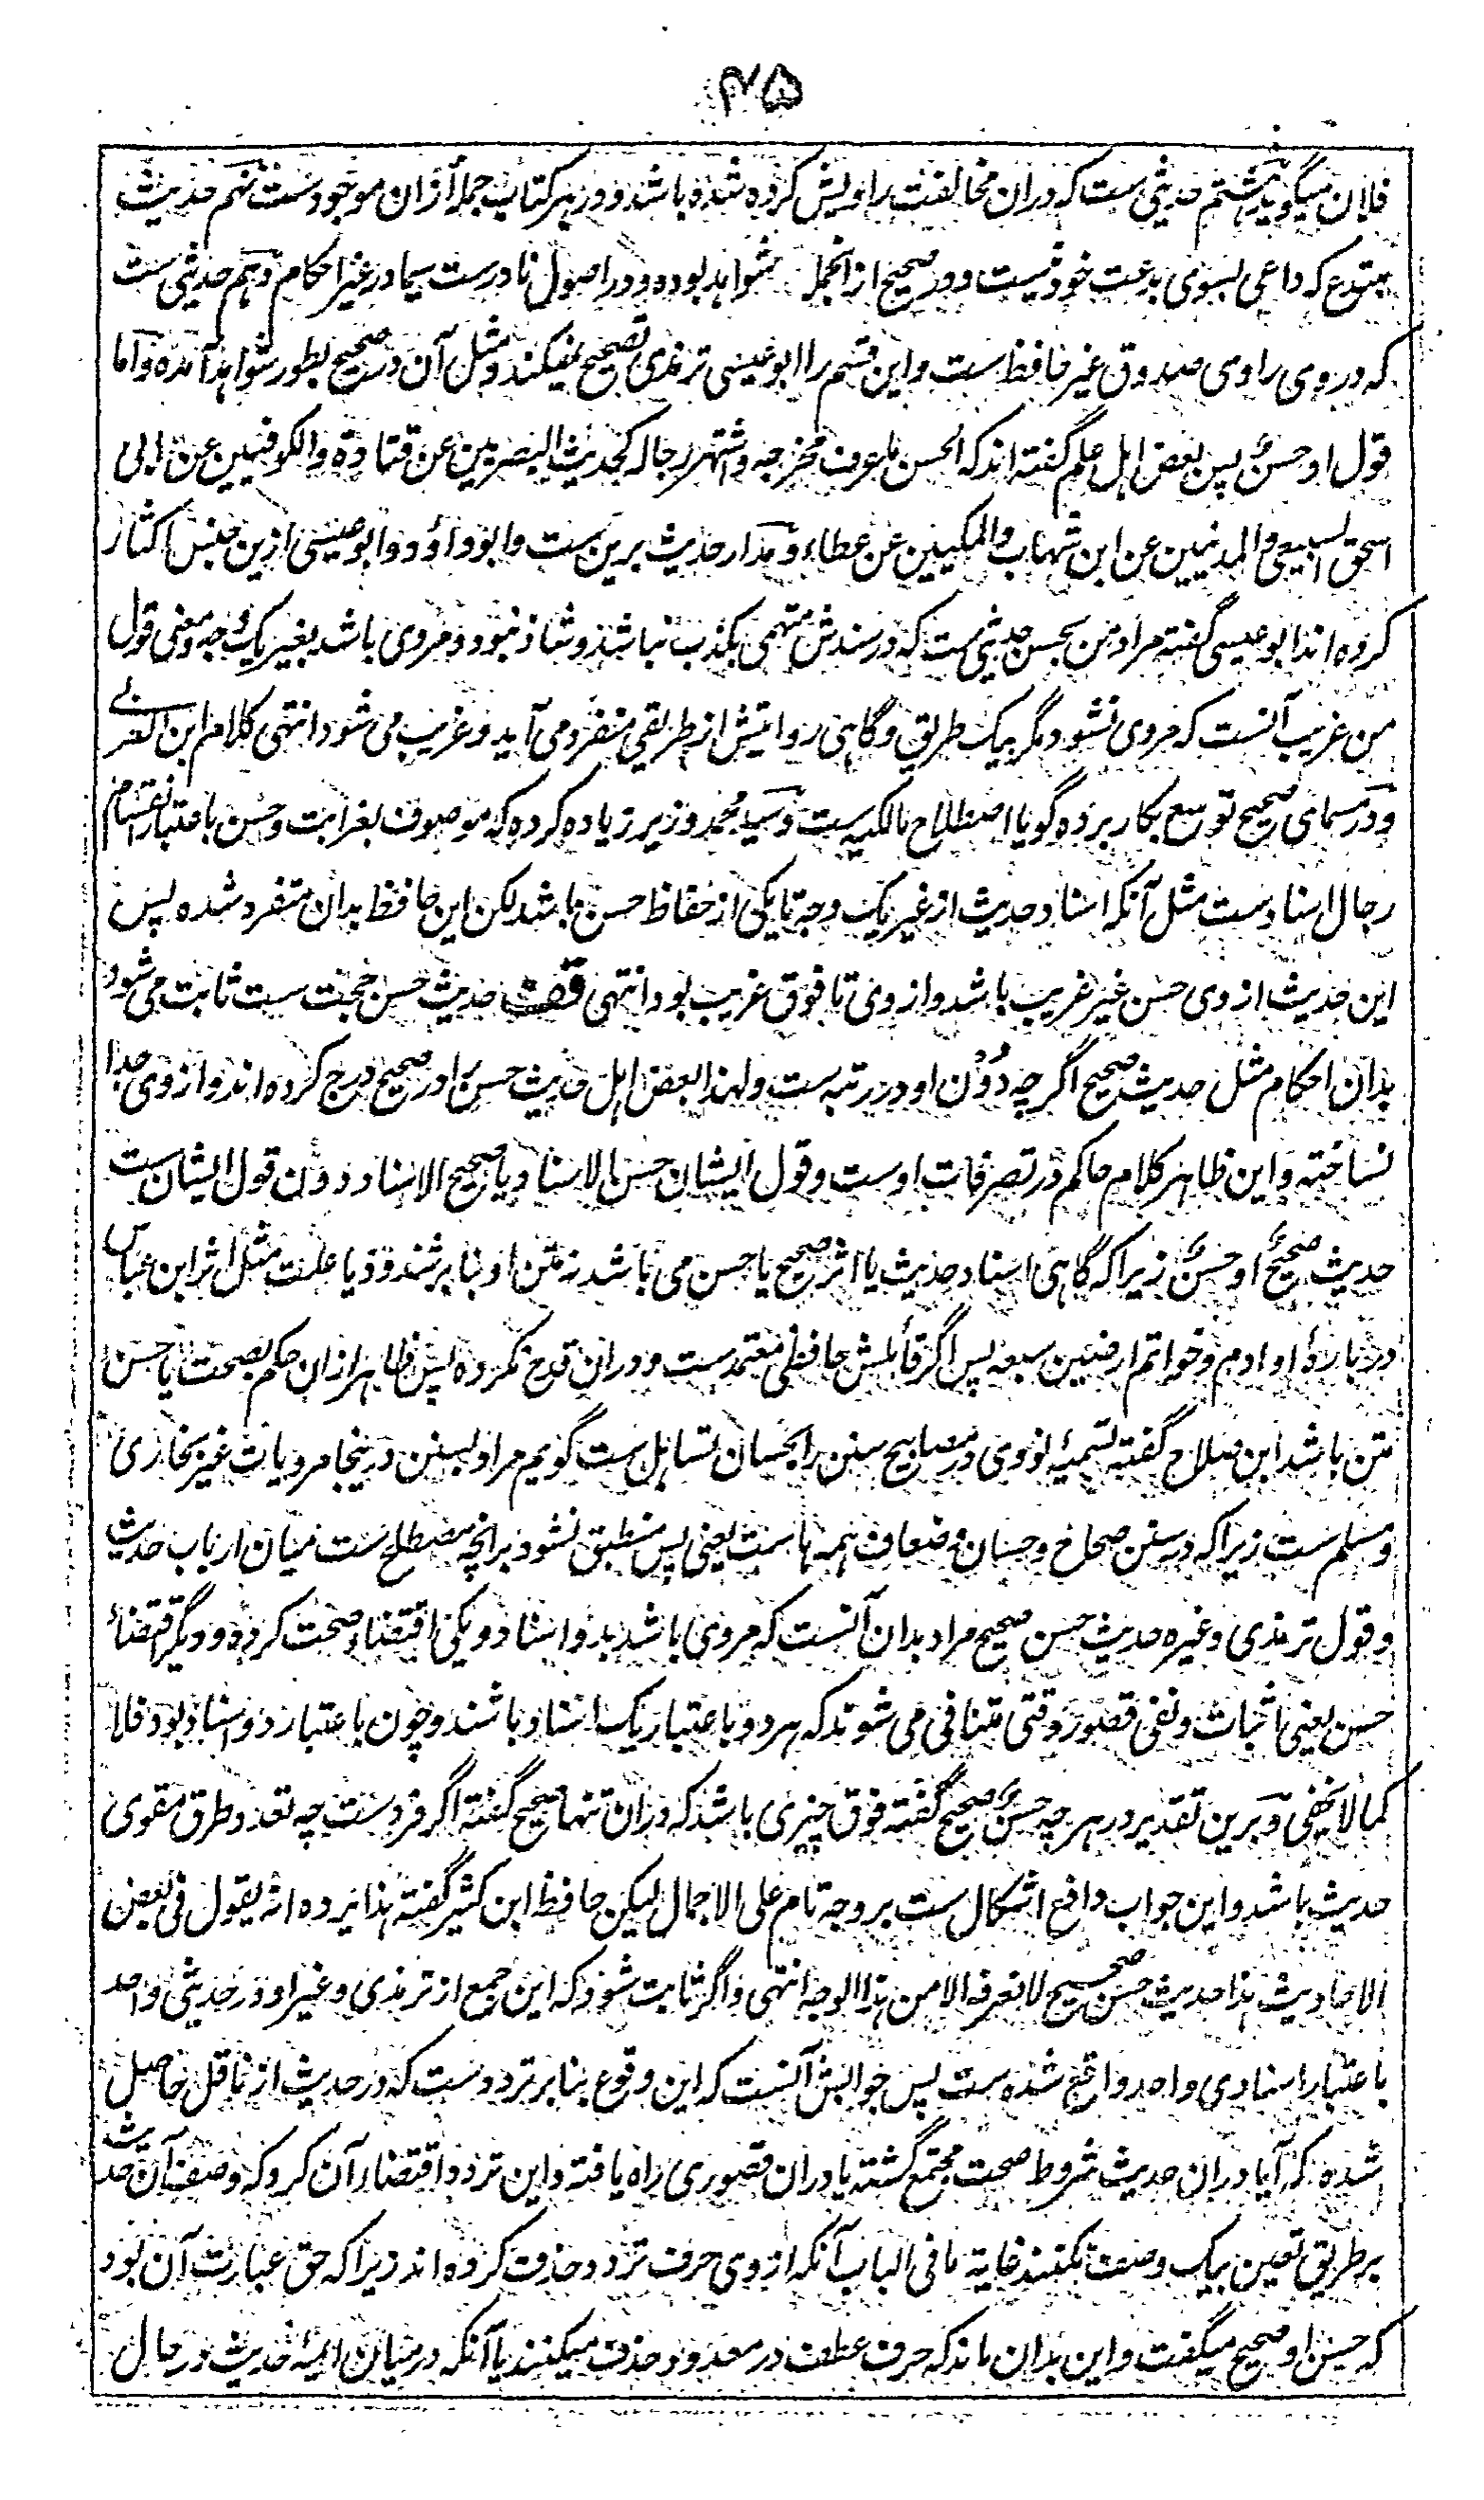 ۴۵
فلان میگوید هشتم حدیثی ست که دران مخالفت راویش کرده شده باشد و در هر کتاب جملۀ ازان موجودست نهم حدیث
مبتدع که داعی بسوی بدعت خود نیست و در صحیح ازانجمله شواهد بوده و در اصول نادرست سیما در غیر احکام دهم حدیثی ست
که در وی راوی صدوق غیر حافظ ست و این قسم را ابو عیسی ترمذی تصحیح میکند و مثل آن در صحیح بطور شواهد آمده و اما
قول او حسنٌ پس بعض اهل علم گفته اند که الحسن ما عرف مخرجه و اشتهر رجاله کحدیث البصریین عن قتادة والکوفیین عن ابی
اسحق السبیعی والمدنیین عن ابن شهاب والمکیین عن عطاء و مدار حدیث برین ست و ابو داؤد و ابو عیسی ازین جنس اکثار
کرده اند ابو عیسی گفته مراد من بحسن حدیثی ست که در سندش متهمی بکذب نباشد و شاذ نبود و مروی باشد بغیر یک وجه و معنی قول
من غریب آنست که مروی نشود مگر بیک طریق و گاهی روایتش از طریقی منفرد می آید و غریب می شود انتهی کلام ابن العربے
و در مسمای صحیح توسیع بکار برده گویا اصطلاح مالکیه ست و سید محمد وزیر زیاده کرده که موصوف بغرابت و حسن باعتبار انقسام
رجال اسناد ست مثل آنکه اسناد حدیث از غیر یک وجه تا یکی از حفاظ حسن باشد لکن این حافظ بدان متفرد شده پس
این حدیث از وی حسن غیر غریب باشد و از وی تا فوق غریب بود انتهی حدیث حسن حجت ست ثابت می شود
بدان احکام مثل حدیث صحیح اگرچه دُوْن او در رتبه ست و لهذا بعض اهل حدیث حسن را در صحیح درج کرده اند و از وی جدا
نساخته و این ظاهر کلام حاکم در تصرفات اوست و قول ایشان حسن الاسناد یا صحیح الاسناد دون قول ایشان ست
حدیث صحیحٌ او حسنٌ زیرا که گاهی اسناد حدیث یا اثر صحیح یا حسن می باشد نه متن او بنا بر شذوذ یا علت مثل اثر ابن عباس
در بارۀ اوادم و خواتم ارضین سبعه پس اگر قائلش حافظی معتمدست و دران قدح نکرده پس ظاهر ازان حکم بصحت یا حسن
متن باشد ابن صلاح گفته تسمیۂ نووی در مصابیح سنن را بحسان تساهل ست گویم مراد بسنن درینجا مرویات غیر بخاری
و مسلم ست زیرا که در سنن صحاح و حسان و ضعاف همه هاست یعنی پس منطبق نشود برانچه مصطلح ست میان ارباب حدیث
و قول ترمذی و غیره حدیث حسن صحیح مراد بدان آنست که مروی باشد بدو اسناد و یکی اقتضاء صحت کرده و دیگر اقتضاء
حسن یعنی اثبات و نفی قصور وقتی متنافی می شوند که هر دو باعتبار یک اسناد باشند و چون باعتبار دو اسناد بود فلا
کما لا یخفی و برین تقدیر در هر چه حسنٌ صحیح گفته فوق چیزی باشد که دران تنها صحیح گفته اگر فردست چه تعدد طرق مقوی
حدیث باشد و این جواب دافع اشکال ست بر وجه تام علی الاجمال لیکن حافظ ابن کثیر گفته هذا یرده انه یقول فی بعض
الاحادیث هذا حدیث حسن صحیح لا نعرفه الا من هذا الوجه انتهی و اگر ثابت شود که این جمع از ترمذی و غیر او در حدیثی واحد
باعتبار اسنادی واحد واقع شده ست پس جوابش آنست که این وقوع بنا بر ترددست که در حدیث از ناقل حاصل
شده که آیا دران حدیث شروط صحت مجتمع گشته یا دران قصوری راه یافته و این تردد اقتضاء آن کرد که وصف آن حدیث
بر طریق تعین بیک وصف نکنند غایة ما فی الباب آنکه از وی حرف تردد حذف کرده اند زیرا که حق عبارت آن بود
که حسن او صحیح میگفت و این بدان ماند که حرف عطف در معدود حذف میکنند یا آنکه درمیان ائمۂ حدیث در حال